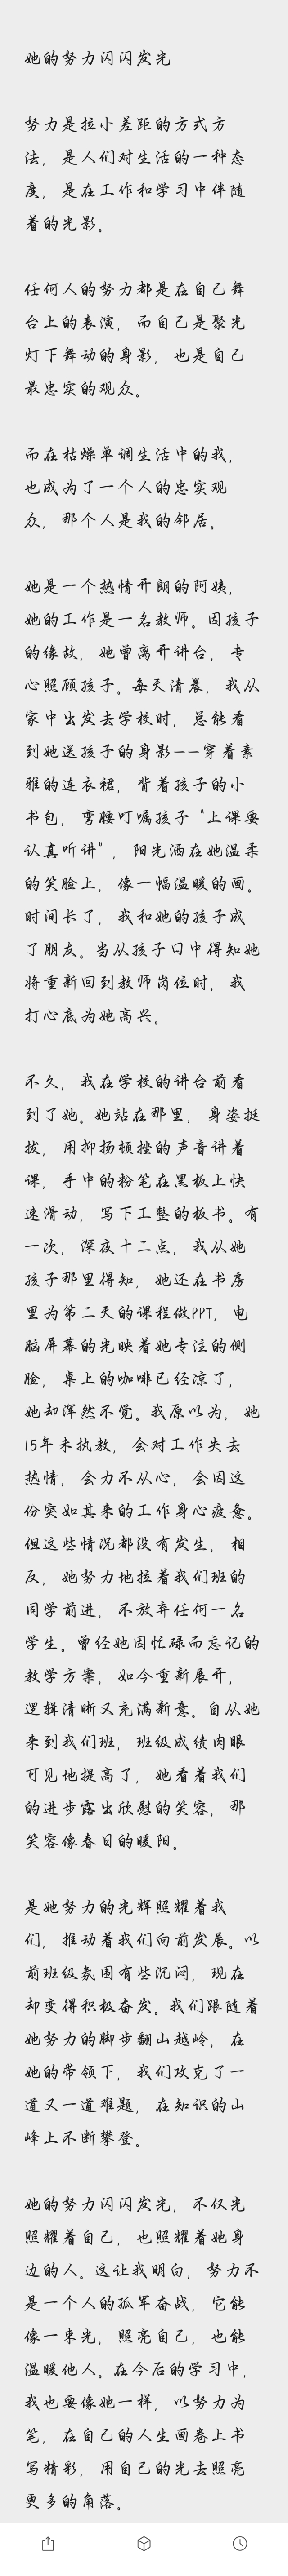 她的努力闪闪发光
努力是拉小差距的方式方
法，是人们对生活的一种态
度，是在工作和学习中伴随
着的光影。
任何人的努力都是在自己舞
台上的表演，而自己是聚光
灯下舞动的身影，也是自己
最忠实的观众。
而在枯燥单调生活中的我，
也成为了一个人的忠实观
众，那个人是我的邻居。
她是一个热情开朗的阿姨，
她的工作是一名教师。因孩子
的缘故，她曾离开讲台，专
心照顾孩子。每天清晨，我从
家中出发去学校时，总能看
到她送孩子的身影——穿着素
雅的连衣裙，背着孩子的小
书包，弯腰叮嘱孩子“上课要
认真听讲”，阳光洒在她温柔
的笑脸上，像一幅温暖的画。
时间长了，我和她的孩子成
了朋友。当从孩子口中得知她
将重新回到教师岗位时，我
打心底为她高兴。
不久，我在学校的讲台前看
到了她。她站在那里，身姿挺
拔，用抑扬顿挫的声音讲着
课，手中的粉笔在黑板上快
速滑动，写下工整的板书。有
一次，深夜十二点，我从她
孩子那里得知，她还在书房
里为第二天的课程做PPT，电
脑屏幕的光映着她专注的侧
脸，桌上的咖啡已经凉了，
她却浑然不觉。我原以为，她
15年未执教，会对工作失去
热情，会力不从心，会因这
份突如其来的工作身心疲惫。
但这些情况都没有发生，相
反，她努力地拉着我们班的
同学前进，不放弃任何一名
学生。曾经她因忙碌而忘记的
教学方案，如今重新展开，
逻辑清晰又充满新意。自从她
来到我们班，班级成绩肉眼
可见地提高了，她看着我们
的进步露出欣慰的笑容，那
笑容像春日的暖阳。
是她努力的光辉照耀着我
们，推动着我们向前发展。以
前班级氛围有些沉闷，现在
却变得积极奋发。我们跟随着
她努力的脚步翻山越岭，在
她的带领下，我们攻克了一
道又一道难题，在知识的山
峰上不断攀登。
她的努力闪闪发光，不仅光
照耀着自己，也照耀着她身
边的人。这让我明白，努力不
是一个人的孤军奋战，它能
像一束光，照亮自己，也能
温暖他人。在今后的学习中，
我也要像她一样，以努力为
笔，在自己的人生画卷上书
写精彩，用自己的光去照亮
更多的角落。